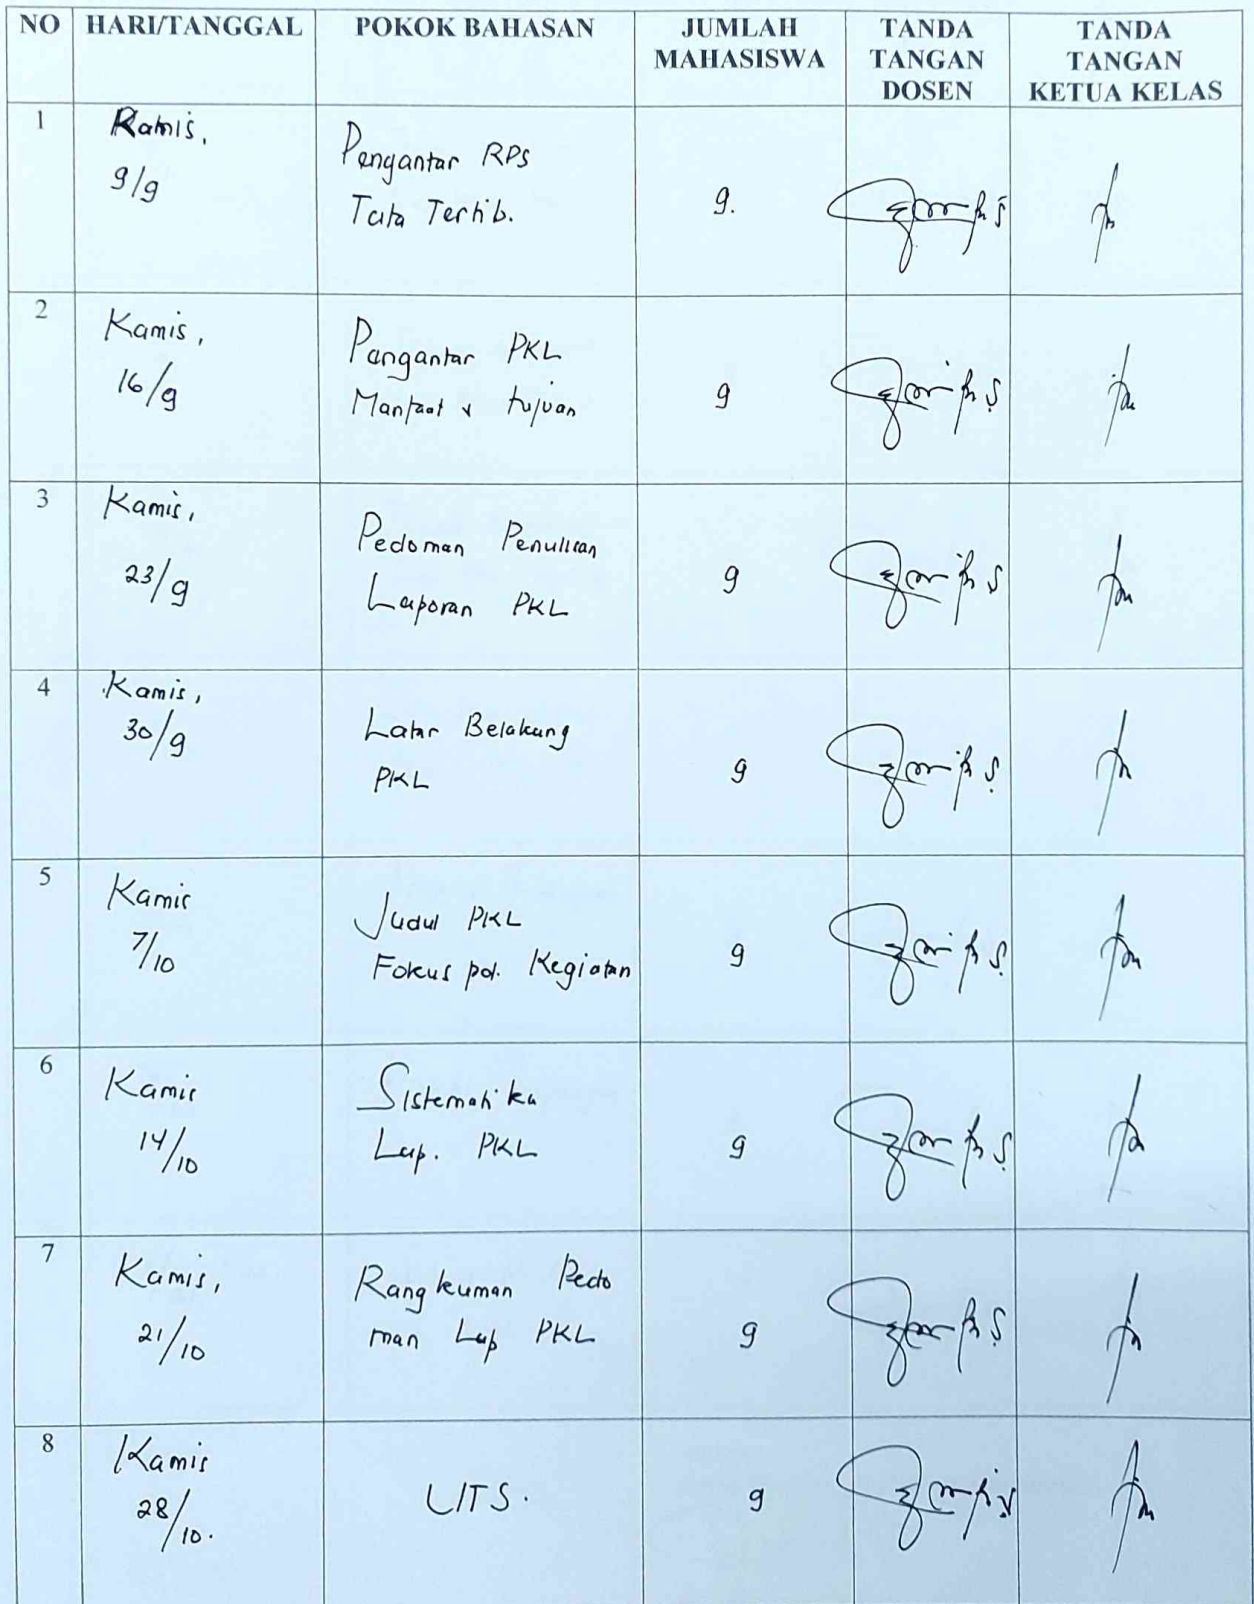 NO HARI/TANGGAL POKOK BAHASAN JUMLAH MAHASISWA TANDA TANGAN DOSEN TANDA TANGAN KETUA KELAS
1
Kamis,
9/9
Pengantar RPS
Tata Tertib.
9.
2
Kamis,
16/9
Pengantar PKL
Manfaat & tujuan
9
3
Kamis,
23/9
Pedoman Penulisan
Laporan PKL
9
4
Kamis,
30/9
Latar Belakang
PKL
9
5
Kamis
7/10
Judul PKL
Fokus pd. Kegiatan
9
6
Kamis
14/10
Sistematika
Lap. PKL
9
7
Kamis,
21/10
Rangkuman Pedo
man Lap PKL
9
8
Kamis
28/10.
UTS.
9